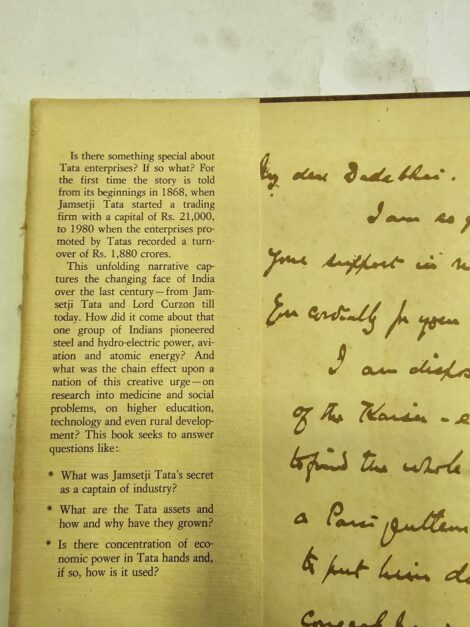 Is there something special about
Tata enterprises? If so what? For
the first time the story is told
from its beginnings in 1868, when
Jamsetji Tata started a trading
firm with a capital of Rs. 21,000,
to 1980 when the enterprises pro-
moted by Tatas recorded a turn-
over of Rs. 1,880 crores.
This unfolding narrative cap-
tures the changing face of India
over the last century—from Jam-
setji Tata and Lord Curzon till
today. How did it come about that
one group of Indians pioneered
steel and hydro-electric power, avi-
ation and atomic energy? And
what was the chain effect upon a
nation of this creative urge—on
research into medicine and social
problems, on higher education,
technology and even rural develop-
ment? This book seeks to answer
questions like:
* What was Jamsetji Tata's secret
as a captain of industry?
* What are the Tata assets and
how and why have they grown?
* Is there concentration of eco-
nomic power in Tata hands and,
if so, how is it used?
My dear Dadabhai.
I am so
your support in
cordially for your
I am
of the Kaiser -
the whole
a Parsi
to put him